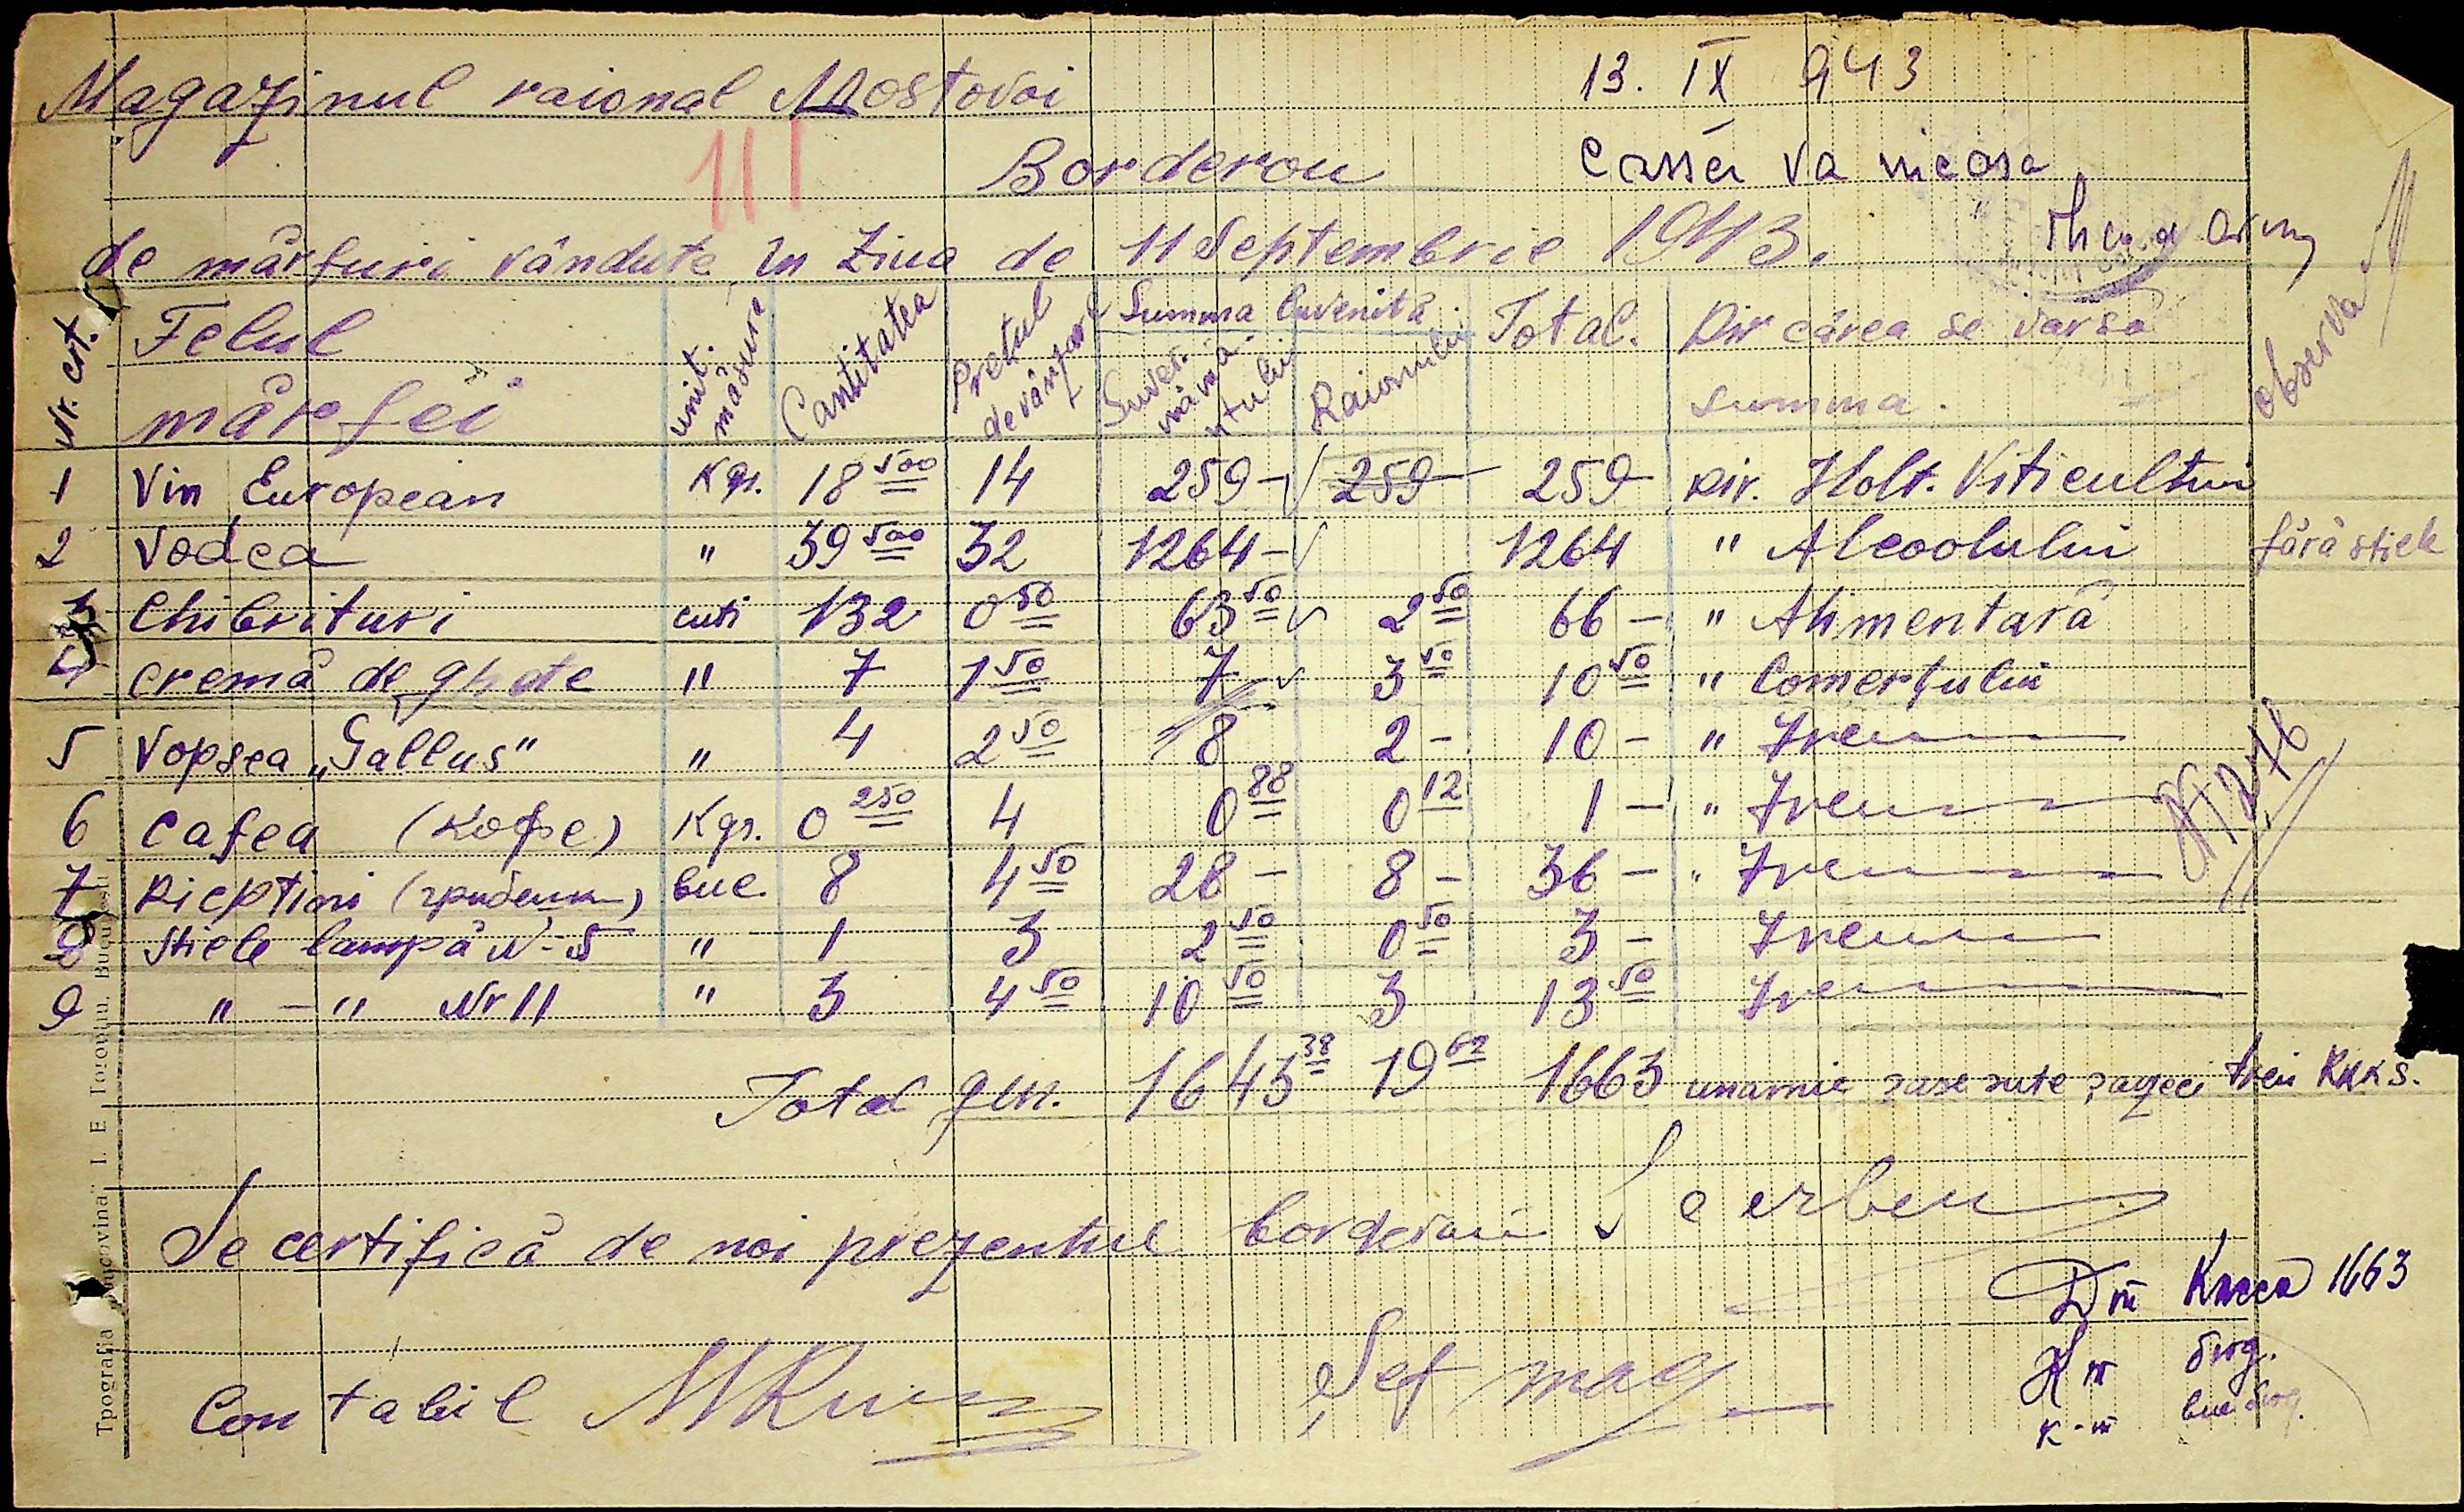 Magazinul raional Mostovoi
13. IX 943
111
Borderou
Cassa va incasa
de mărfuri vândute în ziua de 11 Septembrie 1943.
Nr. crt. Felul mărfei unit. măsura Cantitatea Prețul de vânzare Summa Cuvenită Guvernământului Raionului Total. Dir cărea se varsă summa. observa
1 Vin European Kgr. 18 500 14 259 - 259 259 Dir. Holt. Viticulturi
2 Vodca " 39 500 32 1264 - 1264 " Alcoolului fără sticle
3 Chibrituri cuti 132 0 50 63 50 2 50 66 - " Alimentară
4 cremă de ghete " 7 1 50 7 3 50 10 50 " Comerțului
5 Vopsea „Gallus" " 4 2 50 8 2 - 10 - " Irem
6 Cafea (кофе) Kgr. 0 250 4 0 88 0 12 1 - " Irem
7 Pieptini (гребенки) buc. 8 4 50 28 - 8 - 36 - " Irem
8 sticle lampă N-5 " 1 3 2 50 0 50 3 - Irem
9 " - " Nr 11 " 3 4 50 10 50 3 13 50 Irem
Total gen. 1643 38 19 62 1663 unamie șase sute șazeci trei RKKS.
Se certifică de noi prezentul borderou
Дт Касса 1663
Кт
Contabil
Șef mag
к-т
Tpografia „Bucovina" I. E. Toroutiu, Bucuresti